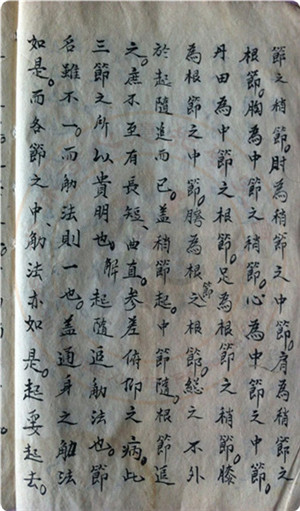 節之稍節。肘為稍節之中節。肩為稍節之
根節。胸為中節之稍節。心為中節之中節。
丹田為中節之根節。足為根節之稍節。膝
為根節之中節。胯為根節之根節。總之不外
於起隨追而已。蓋稍節起。中節隨。根節追
之。庶不至有長短、曲直。參差俯仰之病。此
三節之所以貴明也。解 起隨追觔法也。節
名雖不一。而觔法則一也。蓋通身之觔法
如是。而各節之中、觔法亦如是。起要起去。